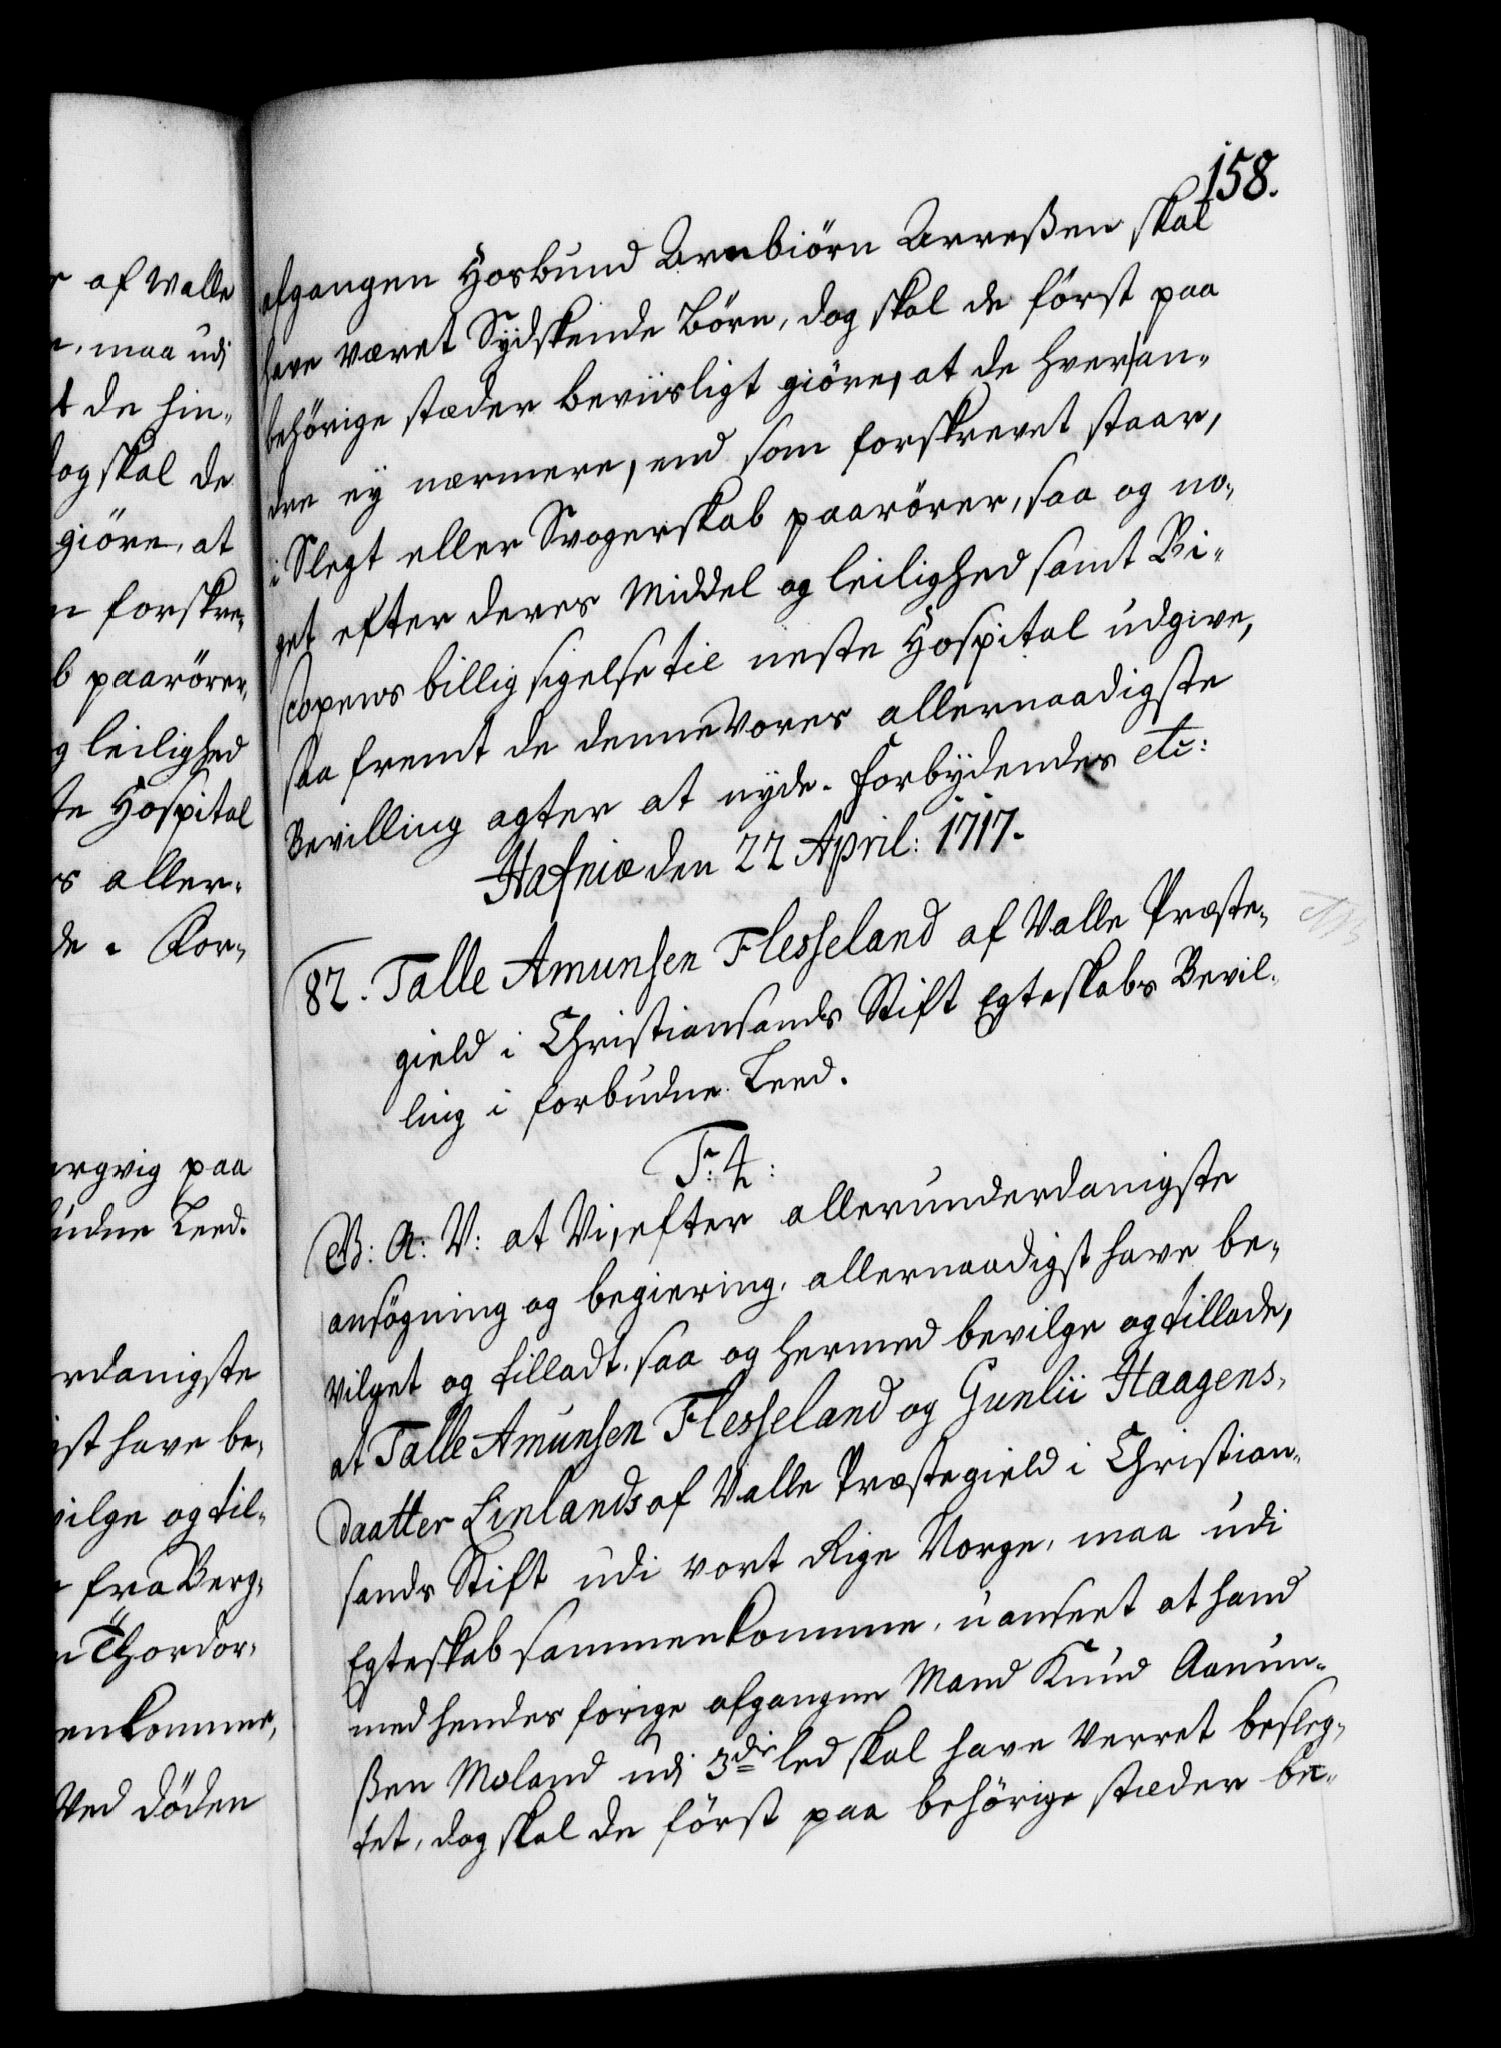 158.
r af Walle
n, maa udi
t de hin-
dog skal de
giöre, at
n forskre-
b paarörer,
g leilighed
te Hospital
rs aller-
de. For-
ergvig paa
udne Leed.
rdanigste
ist have be-
vilge og til-
fra Berg-
n Thordor-
enkomme,
Ved döden
afgangen Hosbund Arnbiörn Arreßen skal
have været Sydskende Börn, dog skal de först paa
behörige stæder beviisligt giöre, at de hver an-
dre ey nærmere, end som forskrevet staar,
i Slegt eller Svogerskab paarörer, saa og no-
get efter deres Middel og leilighed samt Bi-
scopens billig sigelse til neste Hospital udgive,
saa fremt de denne Vores allernaadigste
Bevilling agter at nyde. Forbydendes etc:
Hafniæ den 22 April: 1717.
82. Talle Amunsen Flesseland af Valle Præste-
gield i Christiansands Stift Egteskabs Bevil-
ling i forbudne Leed.
F: 4:
G: A: V: at Vi, efter allerunderdanigste
ansögning og begiering, allernaadigst have be-
vilget og tilladt, saa og hermed bevilge og tillade,
at Talle Amunsen Flesseland og Gunlii Haagens-
daatter Linlands af Valle Præstegield i Christian-
sands Stift udi vort Rige Norge, maa udi
Egteskab sammenkomme, uanseet at hand
med hendes forige afgangne Mand Knud Aanun-
ßen Moland udi 3die led skal have verret besleg-
tet, dog skal de först paa behörige stæder be-